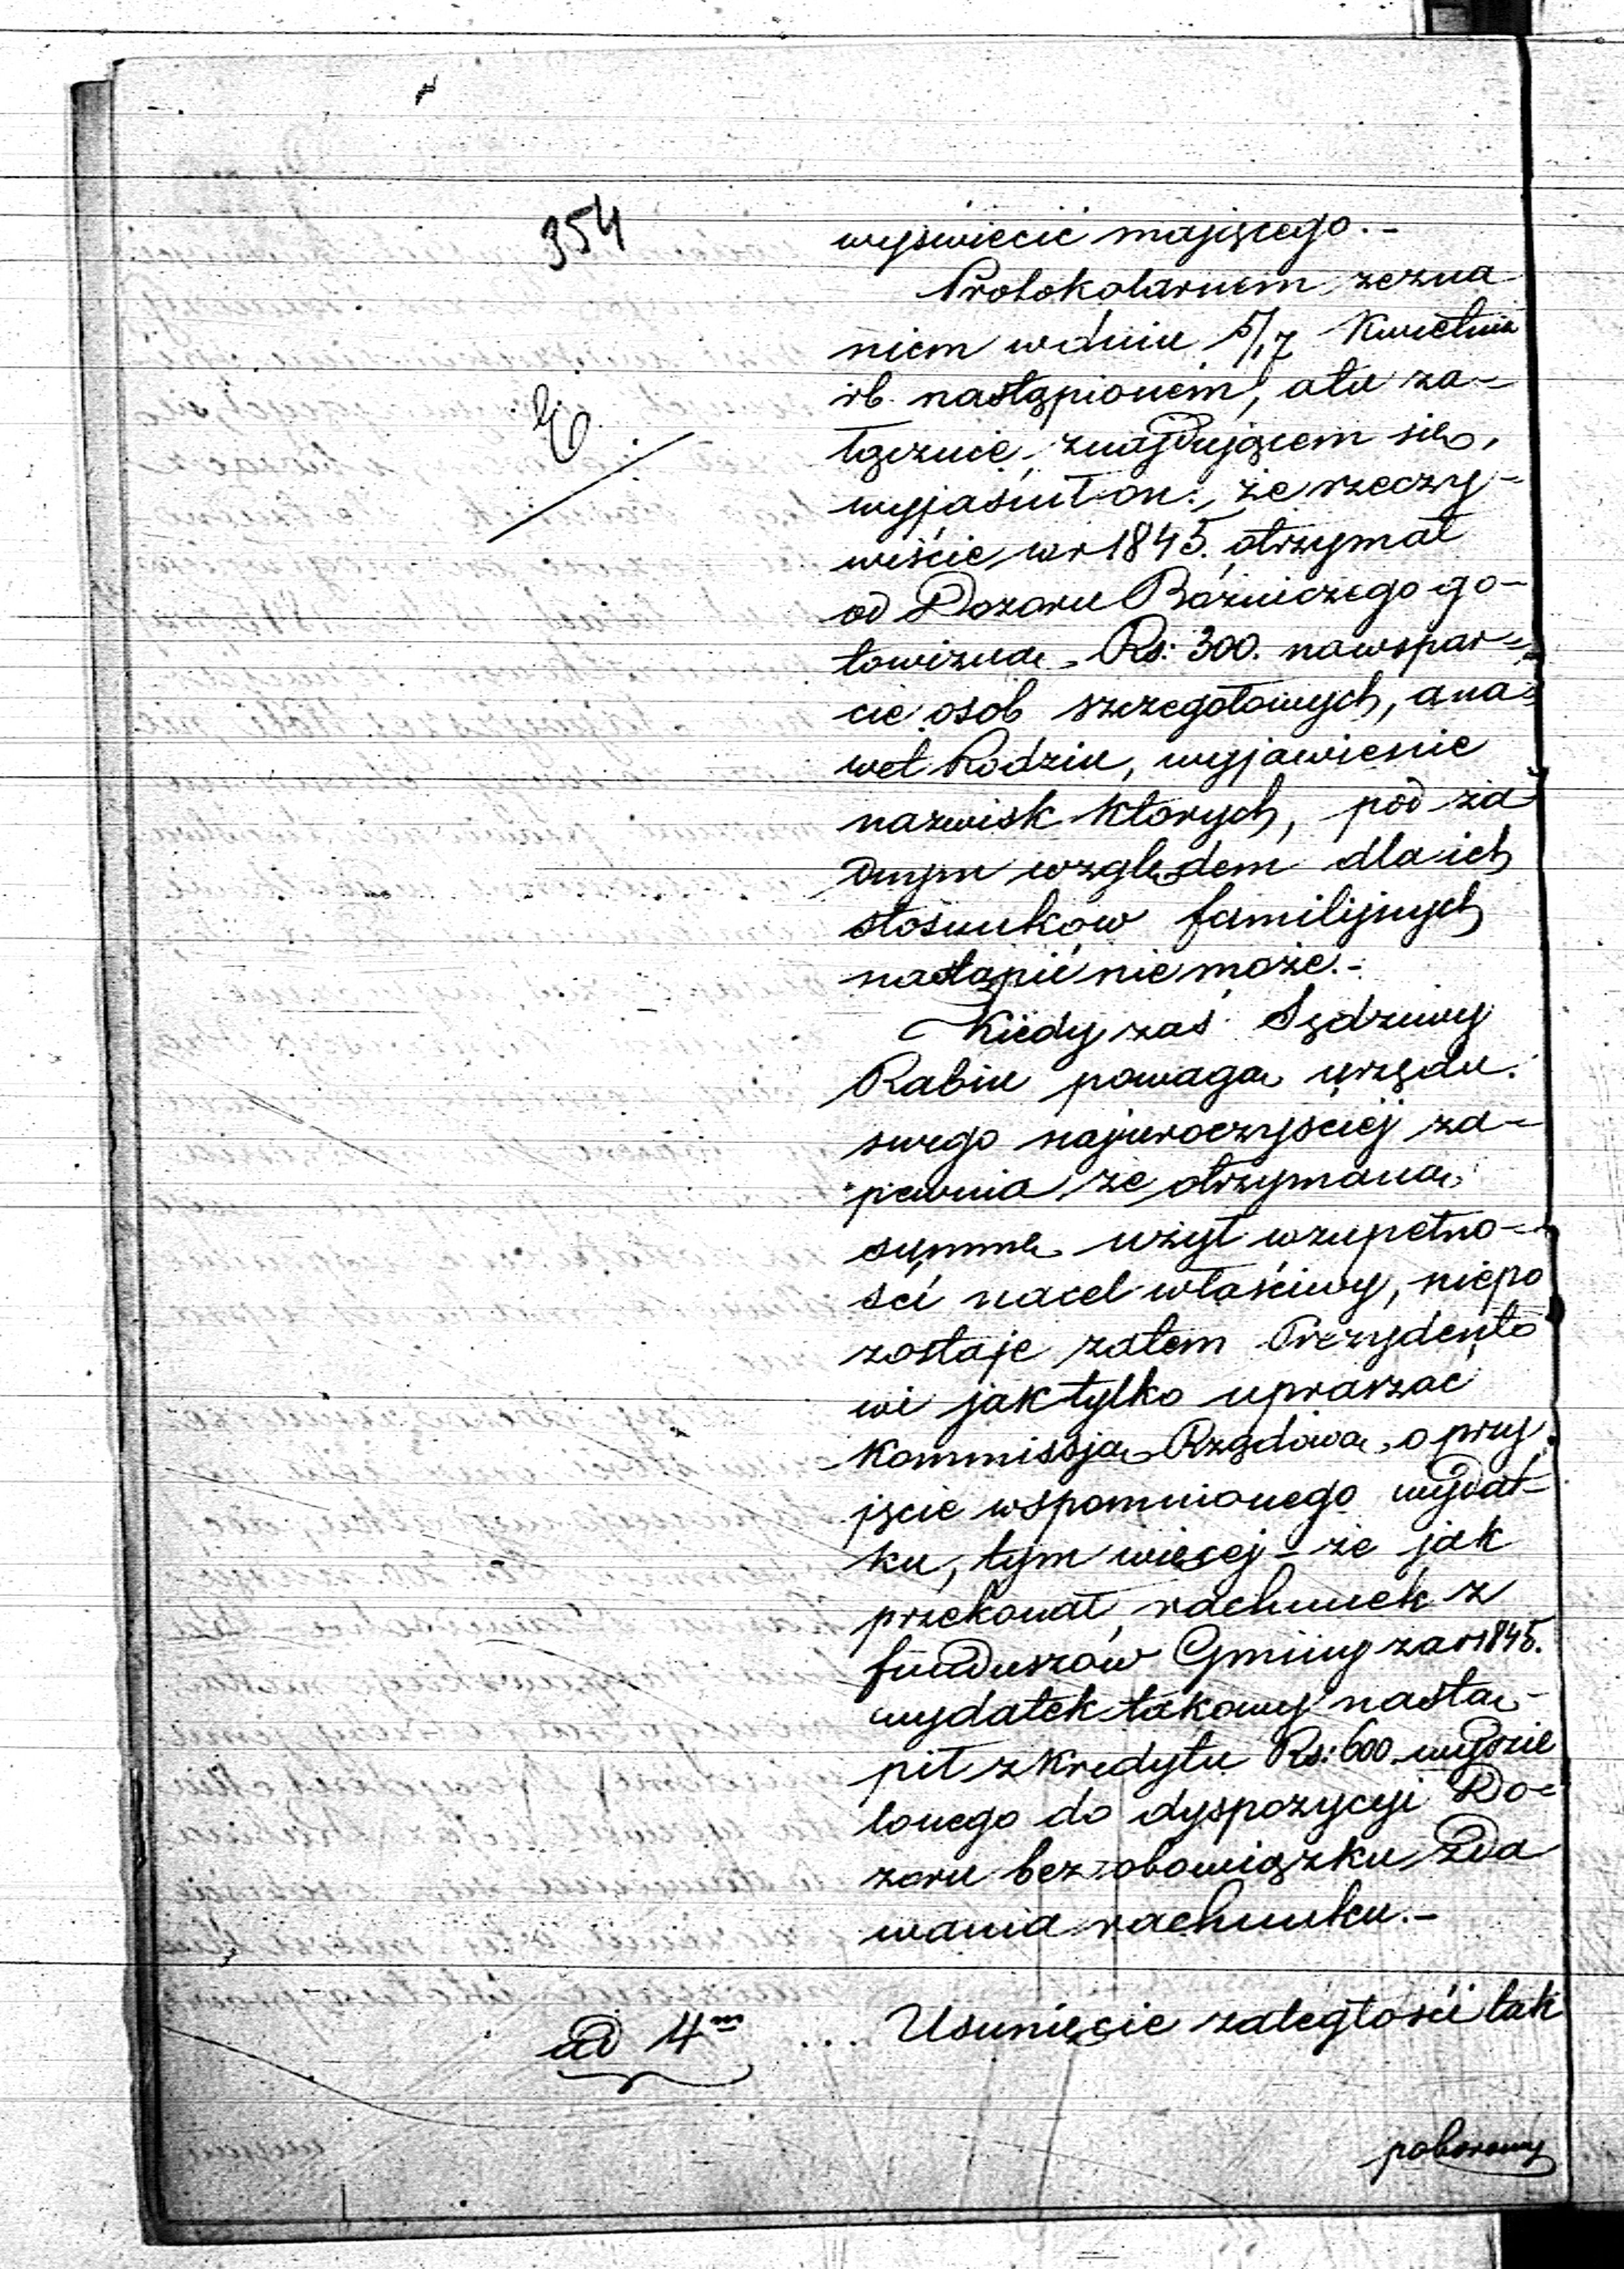 354
wyświecić mającego.-
Protokolarnem zezna
niem w dniu 5/17 Kwietnia
rb. nastąpionem, atu za-
łącznie znajdującem się,
wyjaśnił on, że rzeczy-
wiście w r 1845. otrzymał
od Dozoru Bóżniczego go-
towizną Rs: 300. na wspar-
cie osób szczegółowych, a na-
wet Rodzin, wyjawienie
nazwisk których, pod ża-
dnym względem dla ich
stosunków familijnych
nastąpić nie może.-
Kiedy zaś Sędziwy
Rabin powagą urzędu
swego najuroczyściej za-
pewnia że otrzymaną
summę użył w zupełno-
ści na cel właściwy, niepo
zostaje zatem Prezydento
wi jak tylko upraszać
Kommissją Rządową o przy
jęcie wspomnionego wydat-
ku, tym więcej - że jak
przekonał rachunek z
funduszów Gminy za r 1845.
wydatek takowy nastą-
pił z kredytu Rs: 600 wydzie
lonego do dyspozycyi Do-
zoru bez obowiązku zda
wania rachunku.-
ad 4m ... Usunięcie zaległości tak
poborowy